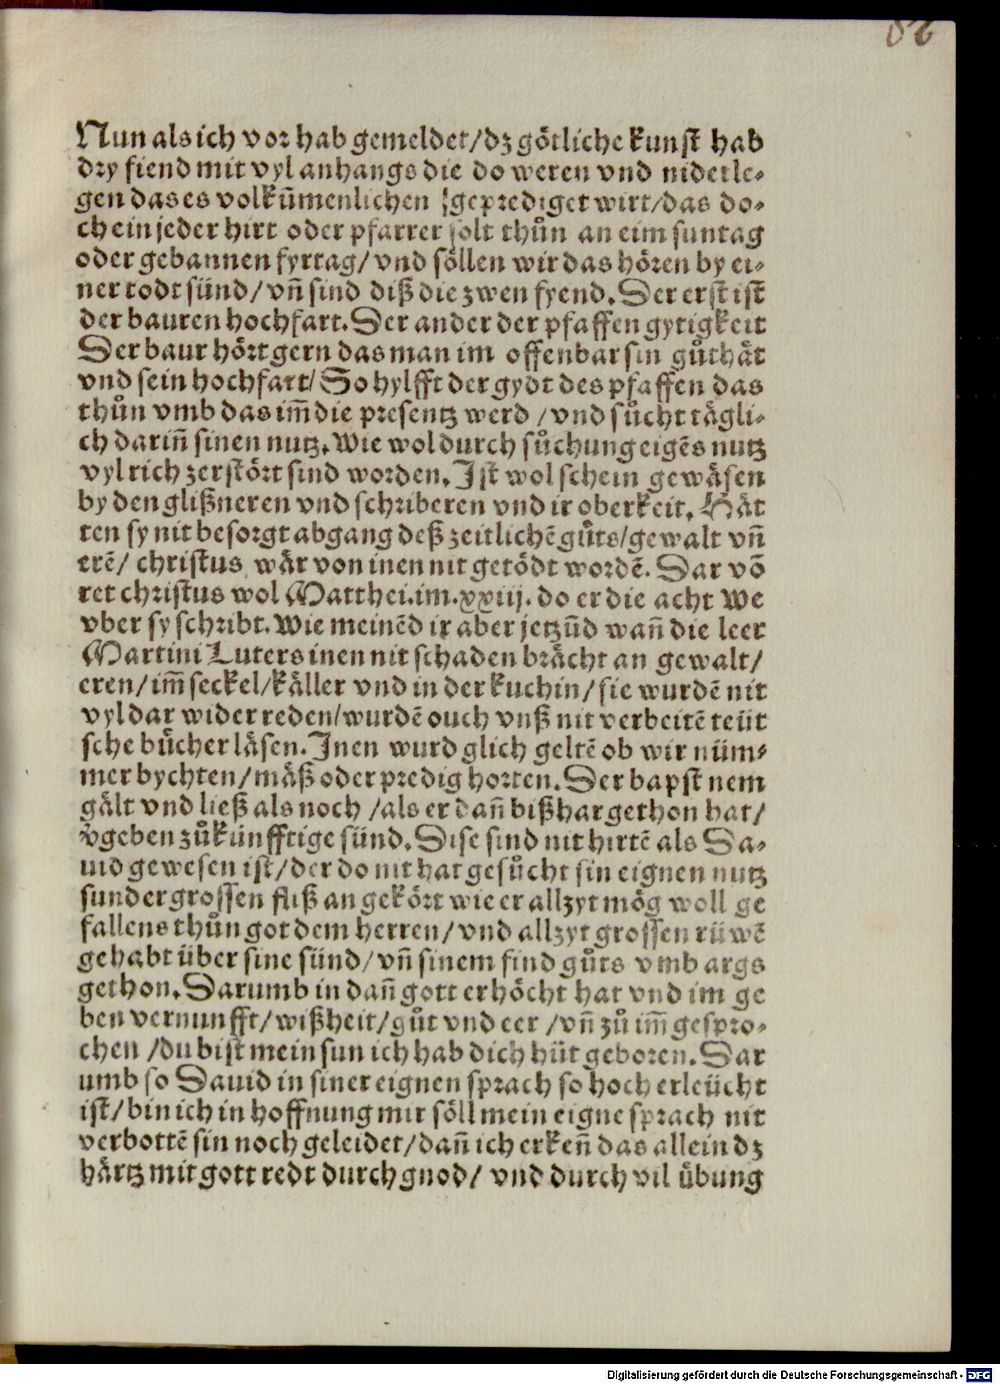 82
Nun als ich vor hab gemeldet/dz götliche kunst hab
dry fiend mit vyl anhangs die do weren vnd niderle-
gen das es volkūmenlichen geprediget wirt/das do-
ch ein jeder hirt oder pfarrer solt thůn an eim suntag
oder gebannen fyrtag/vnd söllen wir das hören by ei-
ner todt sünd/vñ sind diß die zwen fyend. Der erst ist
der bauren hochfart. Der ander der pfaffen gytigkeit
Der baur hört gern das man im offenbar sin gůthåt
vnd sein hochfart/So hylfft der gydt des pfaffen das
thůn vmb das im̄ die presentz werd /vnd sůcht tägli-
ch darin̄ sinen nutz. Wie wol durch sůchung eigēs nutz
vyl rich zerstört sind worden. Ist wol schein gewäsen
by den glißneren vnd schriberen vnd ir oberkeit. Hät
ten sy nit besorgt abgang deß zeitlichē gůts/gewalt vñ
erē/ christus wär von inen nit getödt wordē. Dar vō
ret christus wol Matthei.im.xxiij. do er die acht We
vber sy schribt. Wie meinēd ir aber jetzūd wan̄ die leer
Martini Luters inen nit schaden brächt an gewalt/
eren/im̄ seckel/käller vnd in der kuchin/sie wurdē nit
vyl dar wider reden/wurdē ouch vnß nit verbeitē teüt
sche bücher läsen. Inen wurd glich geltē ob wir nüm-
mer bychten/mäß oder predig horten. Der bapst nem
gält vnd ließ als noch /als er dan̄ bißhar gethon hat/
v̊geben zůkünfftige sünd. Dise sind nit hirtē als Da-
uid gewesen ist/der do nit hat gesůcht sin eignen nutz
sunder grossen fliß an gekört wie er allzyt mög woll ge
fallens thůn got dem herren/vnd allzyt grossen rüwē
gehabt über sine sünd/vñ sinem find gůts vmb args
gethon. Darumb in dan̄ gott erhöcht hat vnd im ge
ben vernunfft/wißheit/gůt vnd eer /vñ zů im̄ gespro-
chen /du bist mein sun ich hab dich hüt geboren. Dar
umb so Dauid in siner eignen sprach so hoch erleücht
ist/bin ich in hoffnung mir söll mein eigne sprach nit
verbottē sin noch geleidet/dan̄ ich erken̄ das allein dz
härtz mit gott redt durch gnod/ vnd durch vil übung
Digitalisierung gefördert durch die Deutsche Forschungsgemeinschaft - DFG